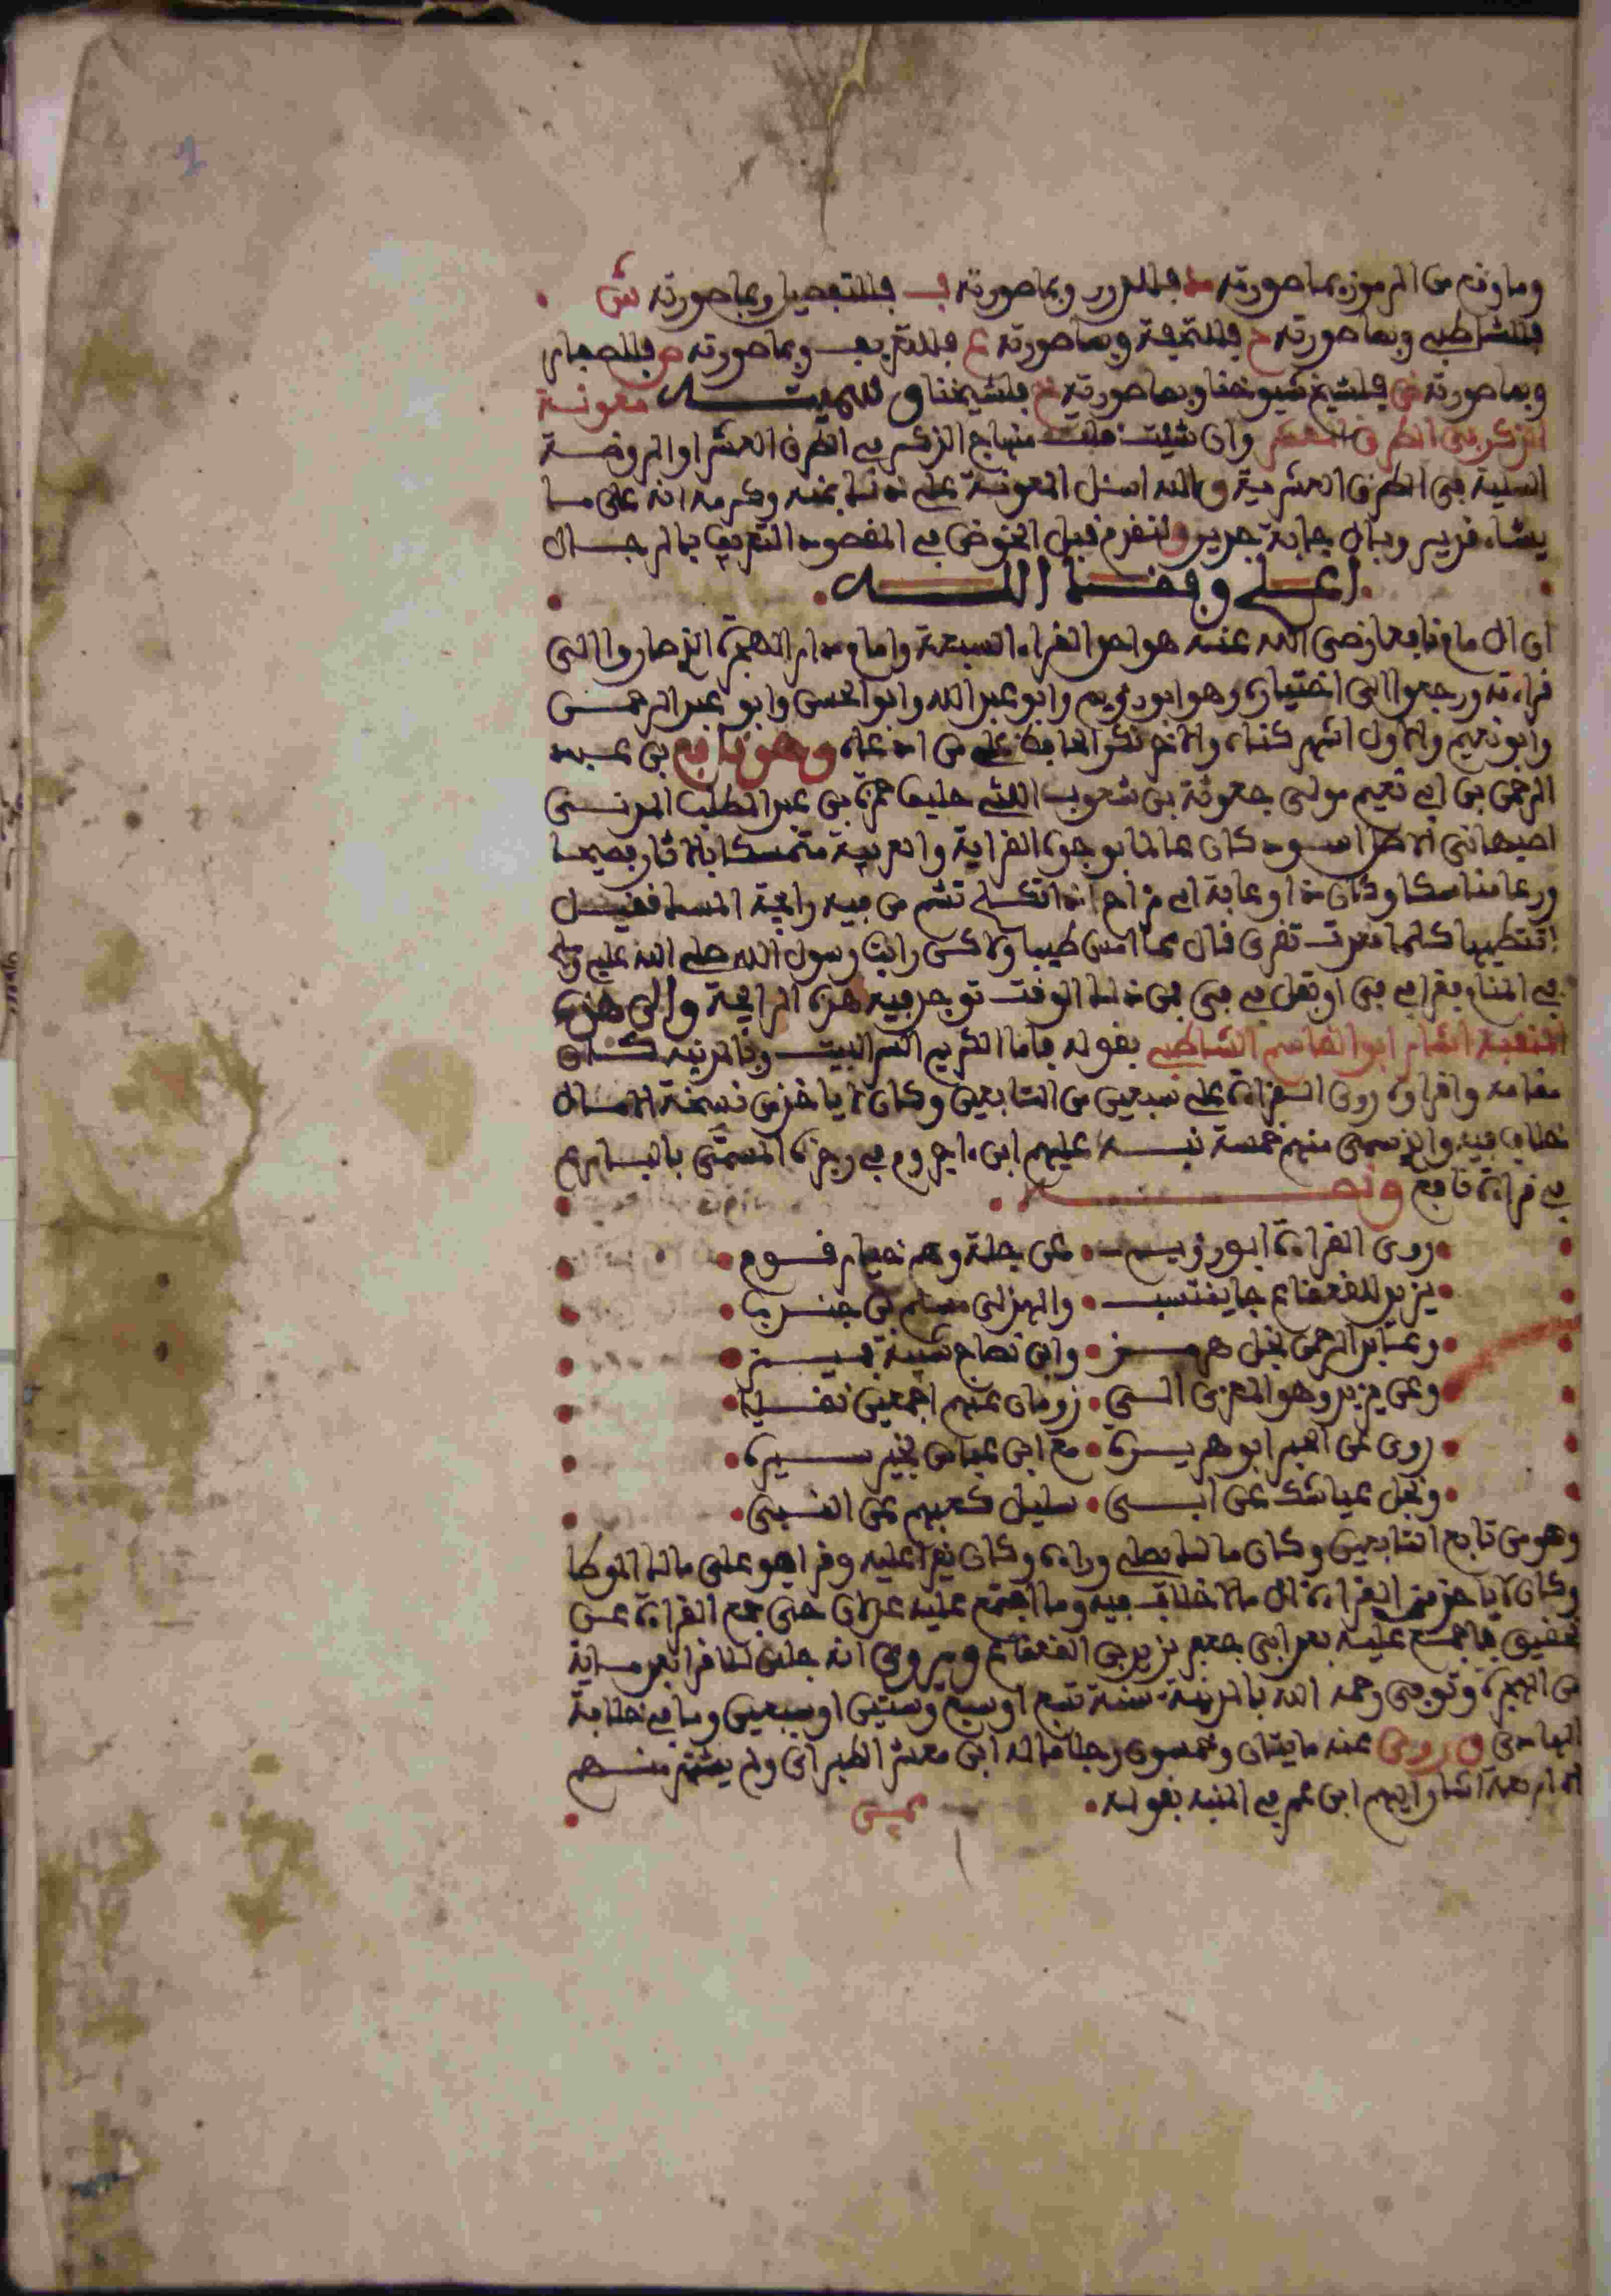 وما وقع من الرموز بما صورته مد فللدرر وبما صورته ف فللتفصيل وبما صورته ش
فللشاطبي وبما صورته ح فللتحفة وبما صورته ع فللتعريف وبما صورته ص فللصفار
وبما صورته خ فلشيخ شيوخنا وبما صورته خ فلشيخنا وسميته معونة
الذكر في الطرق العشر وان شئت قلت منهاج الذكر في الطرق العشر او الروضة
السنية في الطرق العشرية والله اسئل المعونة على ذلك بمنه وكرمه انه على ما
يشاء قدير وبالاجابة جدير ولنقدم قبل الخوض في المقصود التعريف بالرجال
اعلم وفقنا الله
ان الامام نافعا رضي الله عنه هو احد القراء السبعة وامام دار الهجرة الذي صاروا الى
قراءته ورجعوا الى اختياره وهو ابو رويم وابو عبد الله وابو الحسن وابو عبد الرحمن
وابو نعيم والاول اشهر كناه والاخر ذكر الحافظ على من ادعاه وهو نافع بن عبد
الرحمن بن ابي نعيم مولى جعونة بن شعوب الليثي حليف حمزة بن عبد المطلب المدني
اصبهاني الاصل اسود كان عالما بوجوه القراية والعربية متمسكا بالاثار فصيحا
ورعا ناسكا وكان ذا دعابة اي مزاح اذا تكلم تشم من فيه رايحة المسك فقيل
اتتطيب كلما قعدت تقرئ قال ما امس طيبا ولاكن رايت رسول الله صلى الله عليه وسلم
في المنام يقرا في في او تفل في في فمن ذلك الوقت توجد فيه هذه الرايحة والى هذه
المنقبة اشار ابو القاسم الشاطبي بقوله فاما الكريم السر البيت وبالمدينة كان
مقامه واقراؤه روى القراءة على سبعين من التابعين وكان لا ياخذ من نسخة الا ما لا
خلاف فيه والذي سمي منهم خمسة نبه عليهم ابن اجروم في رجزه المسمى بالبارع
في قراءة نافع ونصه
روى القراءة ابو رويم عن جلة وهم خيار قوم
يزيد للقعقاع جا ينتسب والهذلي مسلم بن جندب
وعابد الرحمن نجل هرمز وابن نصاح شيبة فميز
وعن يزيد وهو المعزى الي رومان عنهم اجمعين نقلا
روى عن الحبر ابو هريرة مع ابن عباس بخير سيرة
ونجل عياش عن ابي سليل كعبهم عن النبي
وهو من تابع التابعين وكان مالك يصلي وراءه وكان يقرا عليه وقرا هو على مالك الموطا
وكان لا ياخذ من القراءة الا ما لا خلاف فيه وما اجتمع عليه عدلان حتى جمع القراءة عن
تحقيق فاجمع عليه بعد ابي جعفر يزيد بن القعقاع ويروى انه جلس للاقرا بعد ماية
من الهجرة وتوفي رحمه الله بالمدينة سنة تسع او سبع وستين او سبعين وماية في خلافة
الهادي وروى عنه مايتان وخمسون رجلا قاله ابن معشر الطبراني ولم يشتهر منهم
الا اربعة اشار اليهم ابن عم في المنبه بقوله